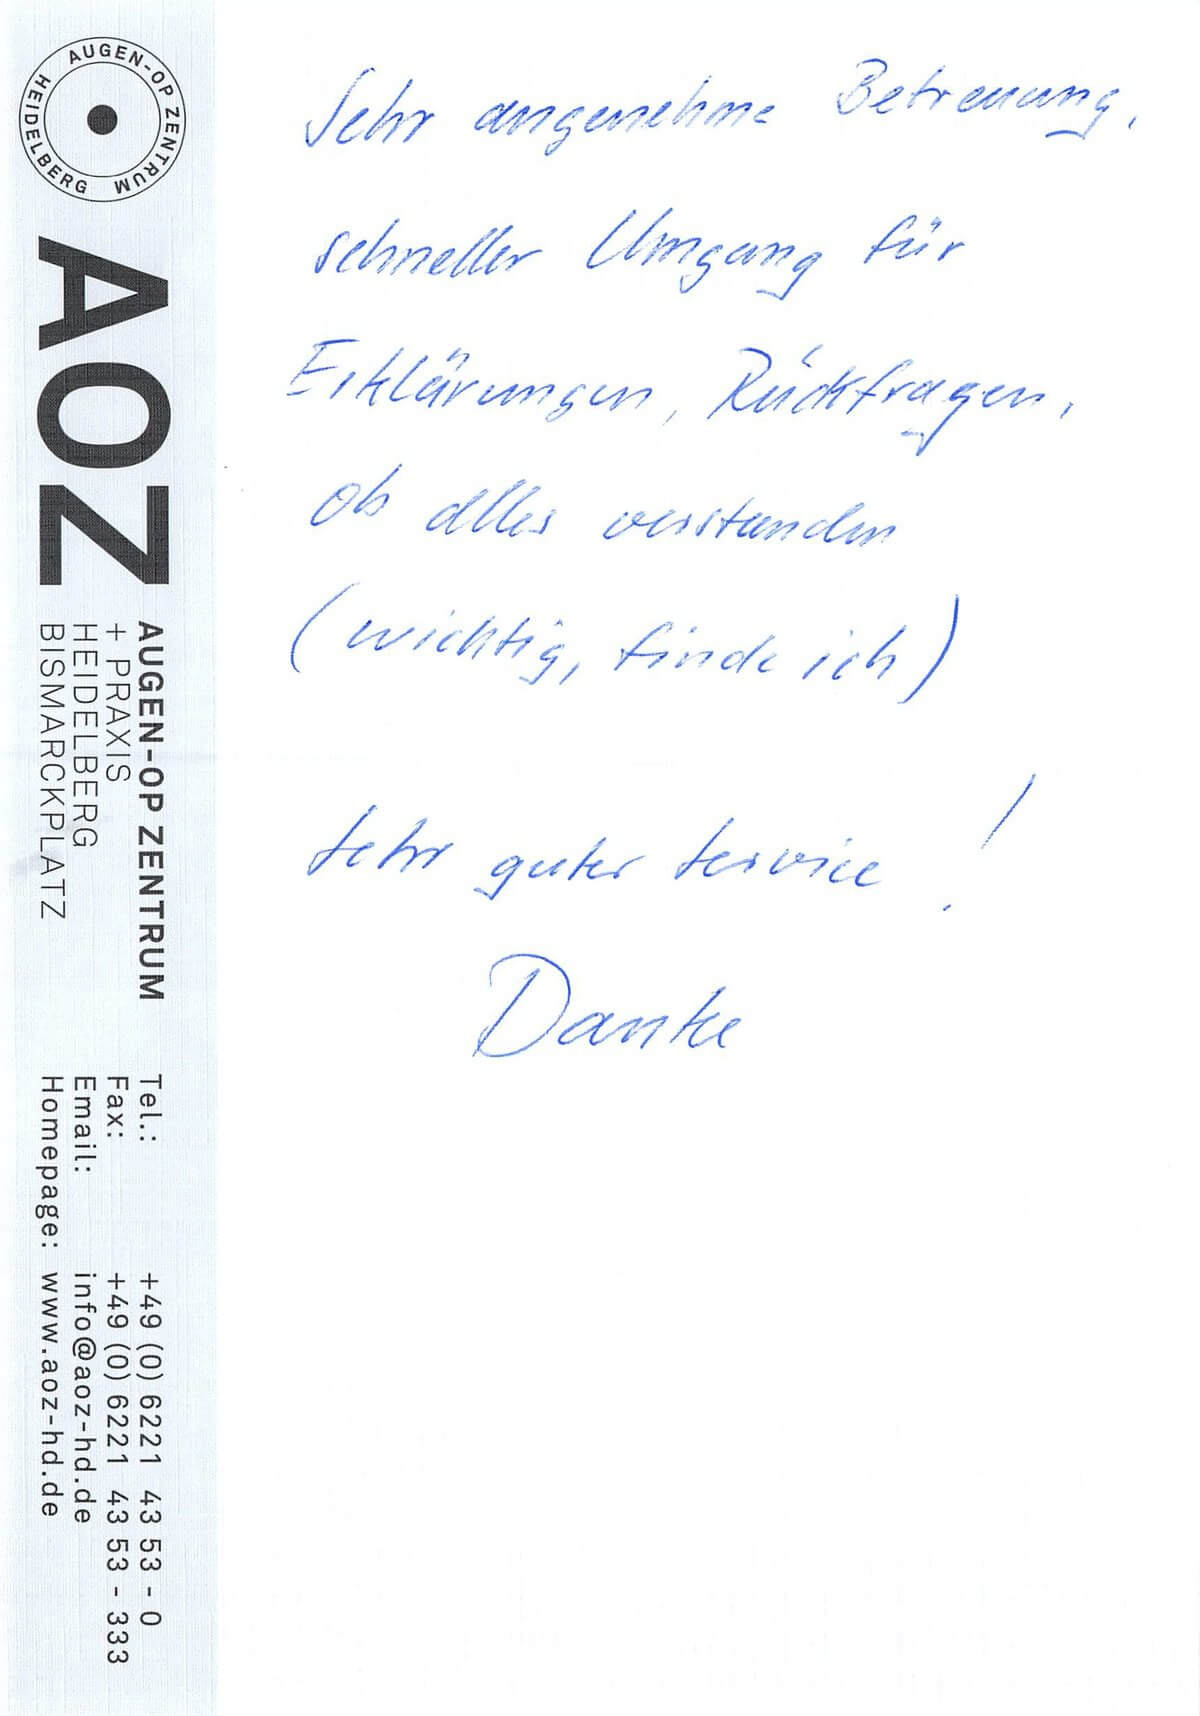 AUGEN-OP ZENTRUM
HEIDELBERG
AOZ
AUGEN-OP ZENTRUM
+ PRAXIS
HEIDELBERG
BISMARCKPLATZ
Tel.: +49 (0) 6221 43 53 - 0
Fax: +49 (0) 6221 43 53 - 333
Email: info@aoz-hd.de
Homepage: www.aoz-hd.de
Sehr angenehme Betreuung,
schneller Umgang für
Erklärungen, Rückfragen,
ob alles verstanden
(wichtig, finde ich)
Sehr guter Service!
Danke